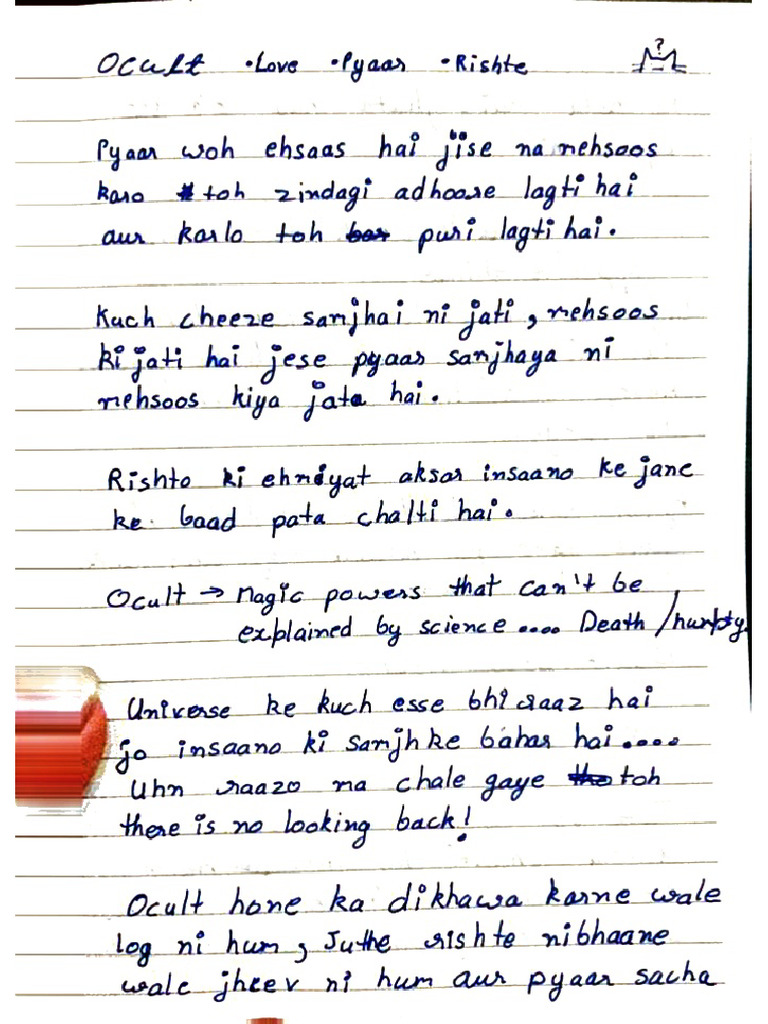 Ocult •Love •Pyaar •Rishte
?
Pyaar woh ehsaas hai jise na mehsoos
karo toh zindagi adhoore lagti hai
aur karlo toh puri lagti hai.
Kuch cheeze samjhai ni jati, mehsoos
ki jati hai jese pyaar samjhaya ni
mehsoos kiya jata hai.
Rishto ki ehmiyat aksar insaano ke jane
ke baad pata chalti hai.
Ocult → Magic powers that can't be
explained by science .... Death /
Universe ke kuch esse bhi raaz hai
jo insaano ki samjh ke bahar hai ....
Uhn raazo ma chale gaye toh
there is no looking back!
Ocult hone ka dikhawa karne wale
log ni hum, Juthe rishte nibhaane
wale jheev ni hum aur pyaar sacha